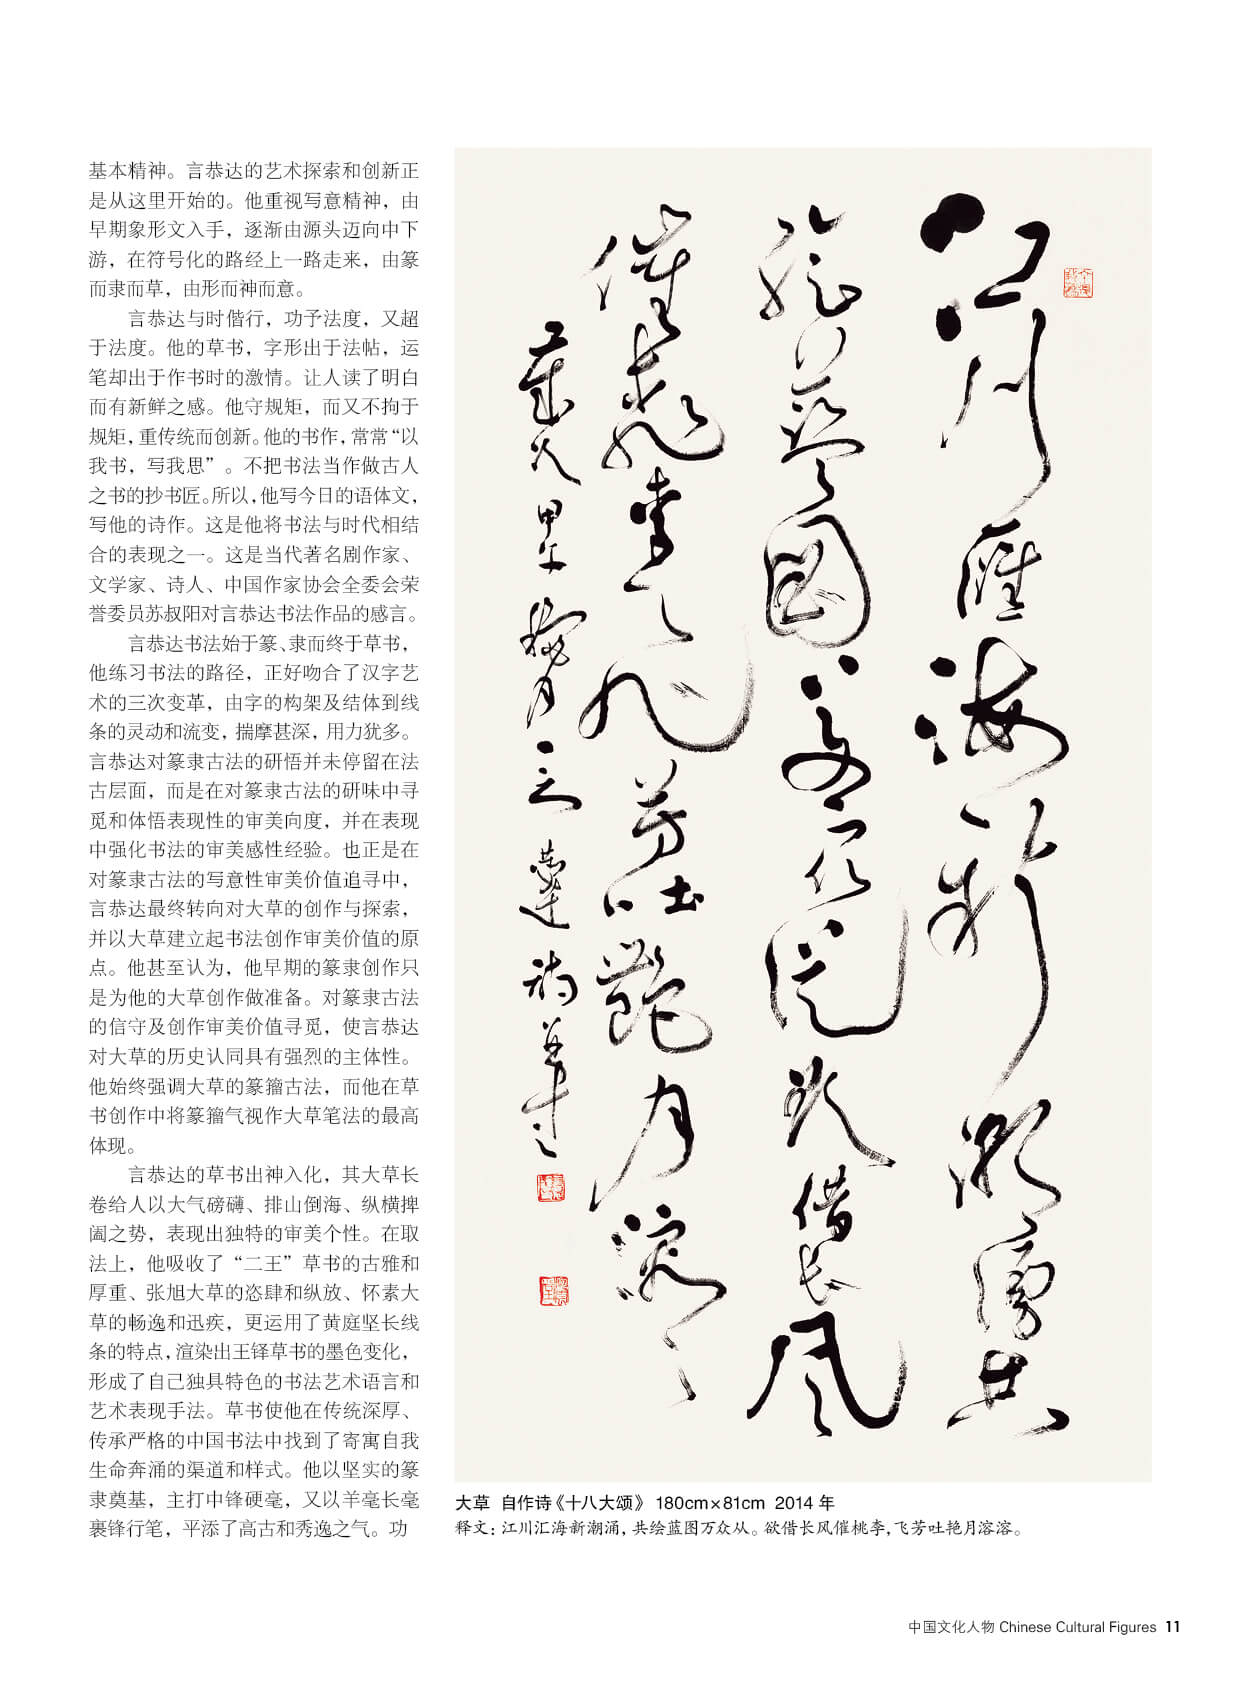 基本精神。言恭达的艺术探索和创新正
是从这里开始的。他重视写意精神，由
早期象形文入手，逐渐由源头迈向中下
游，在符号化的路经上一路走来，由篆
而隶而草，由形而神而意。
言恭达与时偕行，功予法度，又超
于法度。他的草书，字形出于法帖，运
笔却出于作书时的激情。让人读了明白
而有新鲜之感。他守规矩，而又不拘于
规矩，重传统而创新。他的书作，常常“以
我书，写我思”。不把书法当作做古人
之书的抄书匠。所以，他写今日的语体文，
写他的诗作。这是他将书法与时代相结
合的表现之一。这是当代著名剧作家、
文学家、诗人、中国作家协会全委会荣
誉委员苏叔阳对言恭达书法作品的感言。
言恭达书法始于篆、隶而终于草书，
他练习书法的路径，正好吻合了汉字艺
术的三次变革，由字的构架及结体到线
条的灵动和流变，揣摩甚深，用力犹多。
言恭达对篆隶古法的研悟并未停留在法
古层面，而是在对篆隶古法的研味中寻
觅和体悟表现性的审美向度，并在表现
中强化书法的审美感性经验。也正是在
对篆隶古法的写意性审美价值追寻中，
言恭达最终转向对大草的创作与探索，
并以大草建立起书法创作审美价值的原
点。他甚至认为，他早期的篆隶创作只
是为他的大草创作做准备。对篆隶古法
的信守及创作审美价值寻觅，使言恭达
对大草的历史认同具有强烈的主体性。
他始终强调大草的篆籀古法，而他在草
书创作中将篆籀气视作大草笔法的最高
体现。
言恭达的草书出神入化，其大草长
卷给人以大气磅礴、排山倒海、纵横捭
阖之势，表现出独特的审美个性。在取
法上，他吸收了“二王”草书的古雅和
厚重、张旭大草的恣肆和纵放、怀素大
草的畅逸和迅疾，更运用了黄庭坚长线
条的特点，渲染出王铎草书的墨色变化，
形成了自己独具特色的书法艺术语言和
艺术表现手法。草书使他在传统深厚、
传承严格的中国书法中找到了寄寓自我
生命奔涌的渠道和样式。他以坚实的篆
隶奠基，主打中锋硬毫，又以羊毫长毫
裹锋行笔，平添了高古和秀逸之气。功
江川匯海新潮湧共
绘蓝圖万众从欲借长風
催桃李飞芳吐艷月溶溶
甲午 月言恭達詩并書
大草 自作诗《十八大颂》 180cm×81cm 2014 年
释文：江川汇海新潮涌，共绘蓝图万众从。欲借长风催桃李，飞芳吐艳月溶溶。
中国文化人物 Chinese Cultural Figures 11